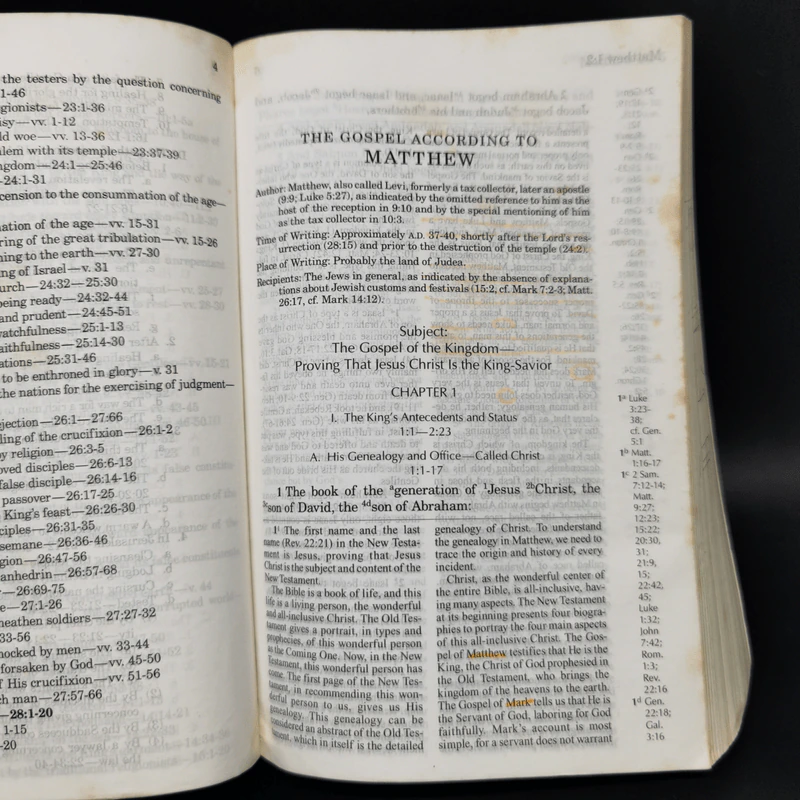 4
the testers by the question concerning
1-46
gionists—23:1-36
isy—vv. 1-12
ld woe—vv. 13-36
alem with its temple—23:37-39
ngdom—24:1—25:46
—24:1-31
cension to the consummation of the age—
nation of the age—vv. 15-31
ring of the great tribulation—vv. 15-26
ning to the earth—vv. 27-30
ng of Israel—v. 31
urch—24:32—25:30
being ready—24:32-44
and prudent—24:45-51
watchfulness—25:1-13
aithfulness—25:14-30
ations—25:31-46
to be enthroned in glory—v. 31
the nations for the exercising of judgment—
ejection—26:1—27:66
ling of the crucifixion—26:1-2
by religion—26:3-5
oved disciples—26:6-13
false disciple—26:14-16
passover—26:17-25
King's feast—26:26-30
ciples—26:31-35
semane—26:36-46
gion—26:47-56
anhedrin—26:57-68
—26:69-75
e—27:1-26
heathen soldiers—27:27-32
33-56
nocked by men—vv. 33-44
forsaken by God—vv. 45-50
f His crucifixion—vv. 51-56
ch man—27:57-66
—28:1-20
1-15
-20
THE GOSPEL ACCORDING TO
MATTHEW
Author: Matthew, also called Levi, formerly a tax collector, later an apostle
(9:9; Luke 5:27), as indicated by the omitted reference to him as the
host of the reception in 9:10 and by the special mentioning of him
as the tax collector in 10:3.
Time of Writing: Approximately A.D. 37-40, shortly after the Lord's res-
urrection (28:15) and prior to the destruction of the temple (24:2).
Place of Writing: Probably the land of Judea.
Recipients: The Jews in general, as indicated by the absence of explana-
tions about Jewish customs and festivals (15:2, cf. Mark 7:2-3; Matt.
26:17, cf. Mark 14:12).
Subject:
The Gospel of the Kingdom—
Proving That Jesus Christ Is the King-Savior
CHAPTER 1
I. The King's Antecedents and Status
1:1—2:23
A. His Genealogy and Office—Called Christ
1:1-17
1 The book of the ᵃgeneration of ¹Jesus ²ᵇChrist, the
³ᶜson of David, the ⁴ᵈson of Abraham:
1¹ The first name and the last
name (Rev. 22:21) in the New Testa-
ment is Jesus, proving that Jesus
Christ is the subject and content of the
New Testament.
The Bible is a book of life, and this
life is a living person, the wonderful
and all-inclusive Christ. The Old Tes-
tament gives a portrait, in types and
prophecies, of this wonderful person
as the Coming One. Now, in the New
Testament, this wonderful person has
come. The first page of the New Tes-
tament, in recommending this won-
derful person to us, gives us His
genealogy. This genealogy can be
considered an abstract of the Old Tes-
tament, which in itself is the detailed
genealogy of Christ. To understand
the genealogy in Matthew, we need to
trace the origin and history of every
incident.
Christ, as the wonderful center of
the entire Bible, is all-inclusive, hav-
ing many aspects. The New Testament
at its beginning presents four biogra-
phies to portray the four main aspects
of this all-inclusive Christ. The Gos-
pel of Matthew testifies that He is the
King, the Christ of God prophesied in
the Old Testament, who brings the
kingdom of the heavens to the earth.
The Gospel of Mark tells us that He is
the Servant of God, laboring for God
faithfully. Mark's account is most
simple, for a servant does not warrant
1ᵃ Luke
3:23-
38;
cf. Gen.
5:1
1ᵇ Matt.
1:16-17
1ᶜ 2 Sam.
7:12-14;
Matt.
9:27;
12:23;
15:22;
20:30,
31;
21:9,
15;
22:42,
45;
Luke
1:32;
John
7:42;
Rom.
1:3;
Rev.
22:16
1ᵈ Gen.
22:18;
Gal.
3:16